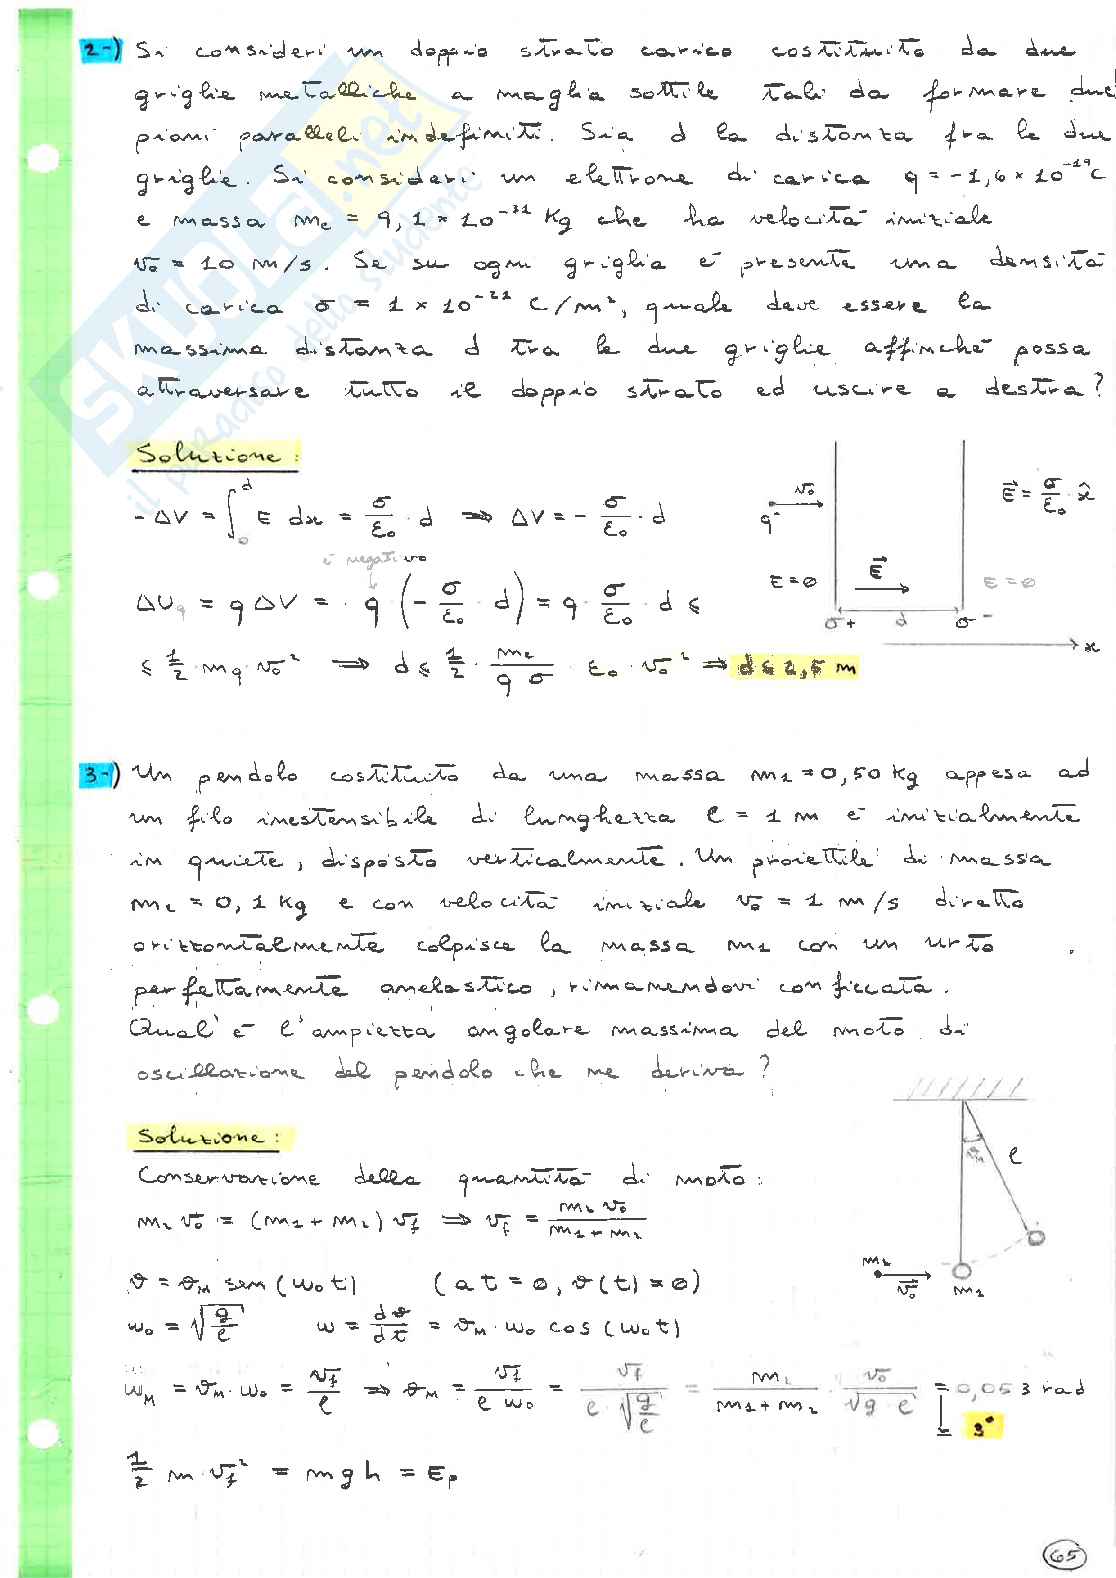 2-) Si consideri un doppio strato carico costituito da due
griglie metalliche a maglia sottile tali da formare due
piani paralleli indefiniti. Sia d la distanza fra le due
griglie. Si consideri un elettrone di carica q = -1,6 × 10⁻¹⁹ C
e massa me = 9,1 × 10⁻³¹ Kg che ha velocità iniziale
v₀ = 10 m/s. Se su ogni griglia è presente una densità
di carica σ = 1 × 10⁻²¹ C/m², quale deve essere la
massima distanza d tra le due griglie affinché possa
attraversare tutto il doppio strato ed uscire a destra?
Soluzione:
-ΔV = ∫₀ᵈ E dx = σ/ε₀ · d ⇒ ΔV = - σ/ε₀ · d
è negativo
ΔUq = q ΔV = · q (- σ/ε₀ · d) = q · σ/ε₀ · d ≤
≤ 1/2 · mq · v₀² ⇒ d ≤ 1/2 · me/(q σ) · ε₀ · v₀² ⇒ d ≤ 2,5 m
v₀
q⁻
E⃗ = σ/ε₀ · x̂
E = 0
E⃗
E = 0
σ+
d
σ-
x
3-) Un pendolo costituito da una massa m₁ = 0,50 kg appesa ad
un filo inestensibile di lunghezza l = 1 m è inizialmente
in quiete, disposto verticalmente. Un proiettile di massa
m₂ = 0,1 kg e con velocità iniziale v₀ = 1 m/s diretto
orizzontalmente colpisce la massa m₁ con un urto
perfettamente anelastico, rimanendovi conficcata.
Qual'è l'ampiezza angolare massima del moto di
oscillazione del pendolo che ne deriva?
Soluzione:
Conservazione della quantità di moto:
m₂ v₀ = (m₁ + m₂) vf ⇒ vf = m₂ v₀/(m₁ + m₂)
ϑ = ϑM sen (ω₀ t) (a t = 0, ϑ(t) = 0)
ω₀ = √(g/l) ω = dϑ/dt = ϑM · ω₀ cos (ω₀ t)
ωM = ϑM · ω₀ = vf/l ⇒ ϑM = vf/(l ω₀) = vf/(l · √(g/l)) = m₂/(m₁ + m₂) · v₀/√(g · l) = 0,053 rad
3°
1/2 m · vf² = m g h = Ep
ϑM
l
m₂
v₀
m₁
65
SKUOLA.net
il paradiso dello studente